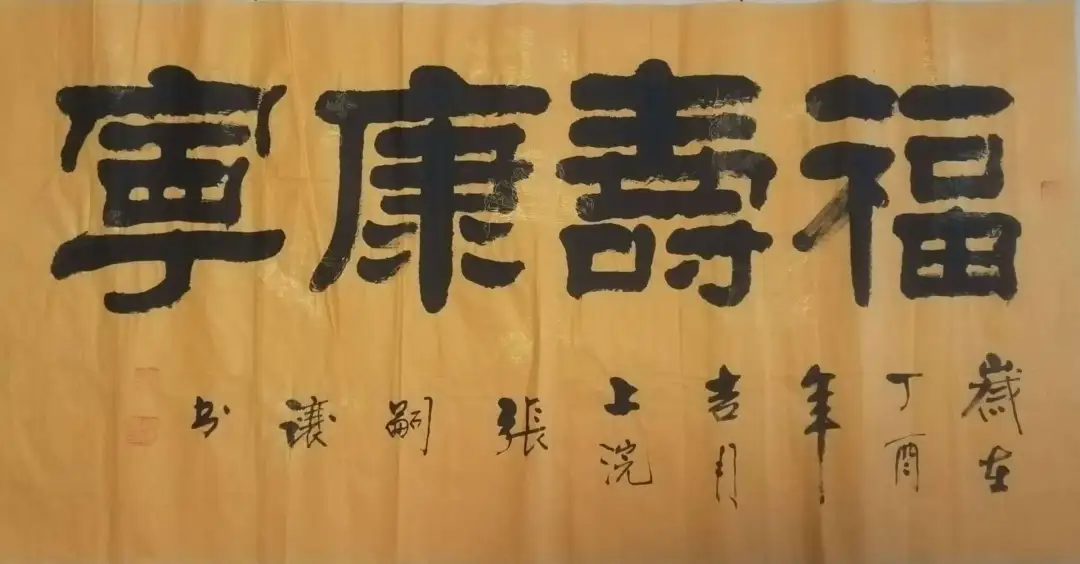 福壽康寧
歲在丁酉年吉月上浣張嗣讓书